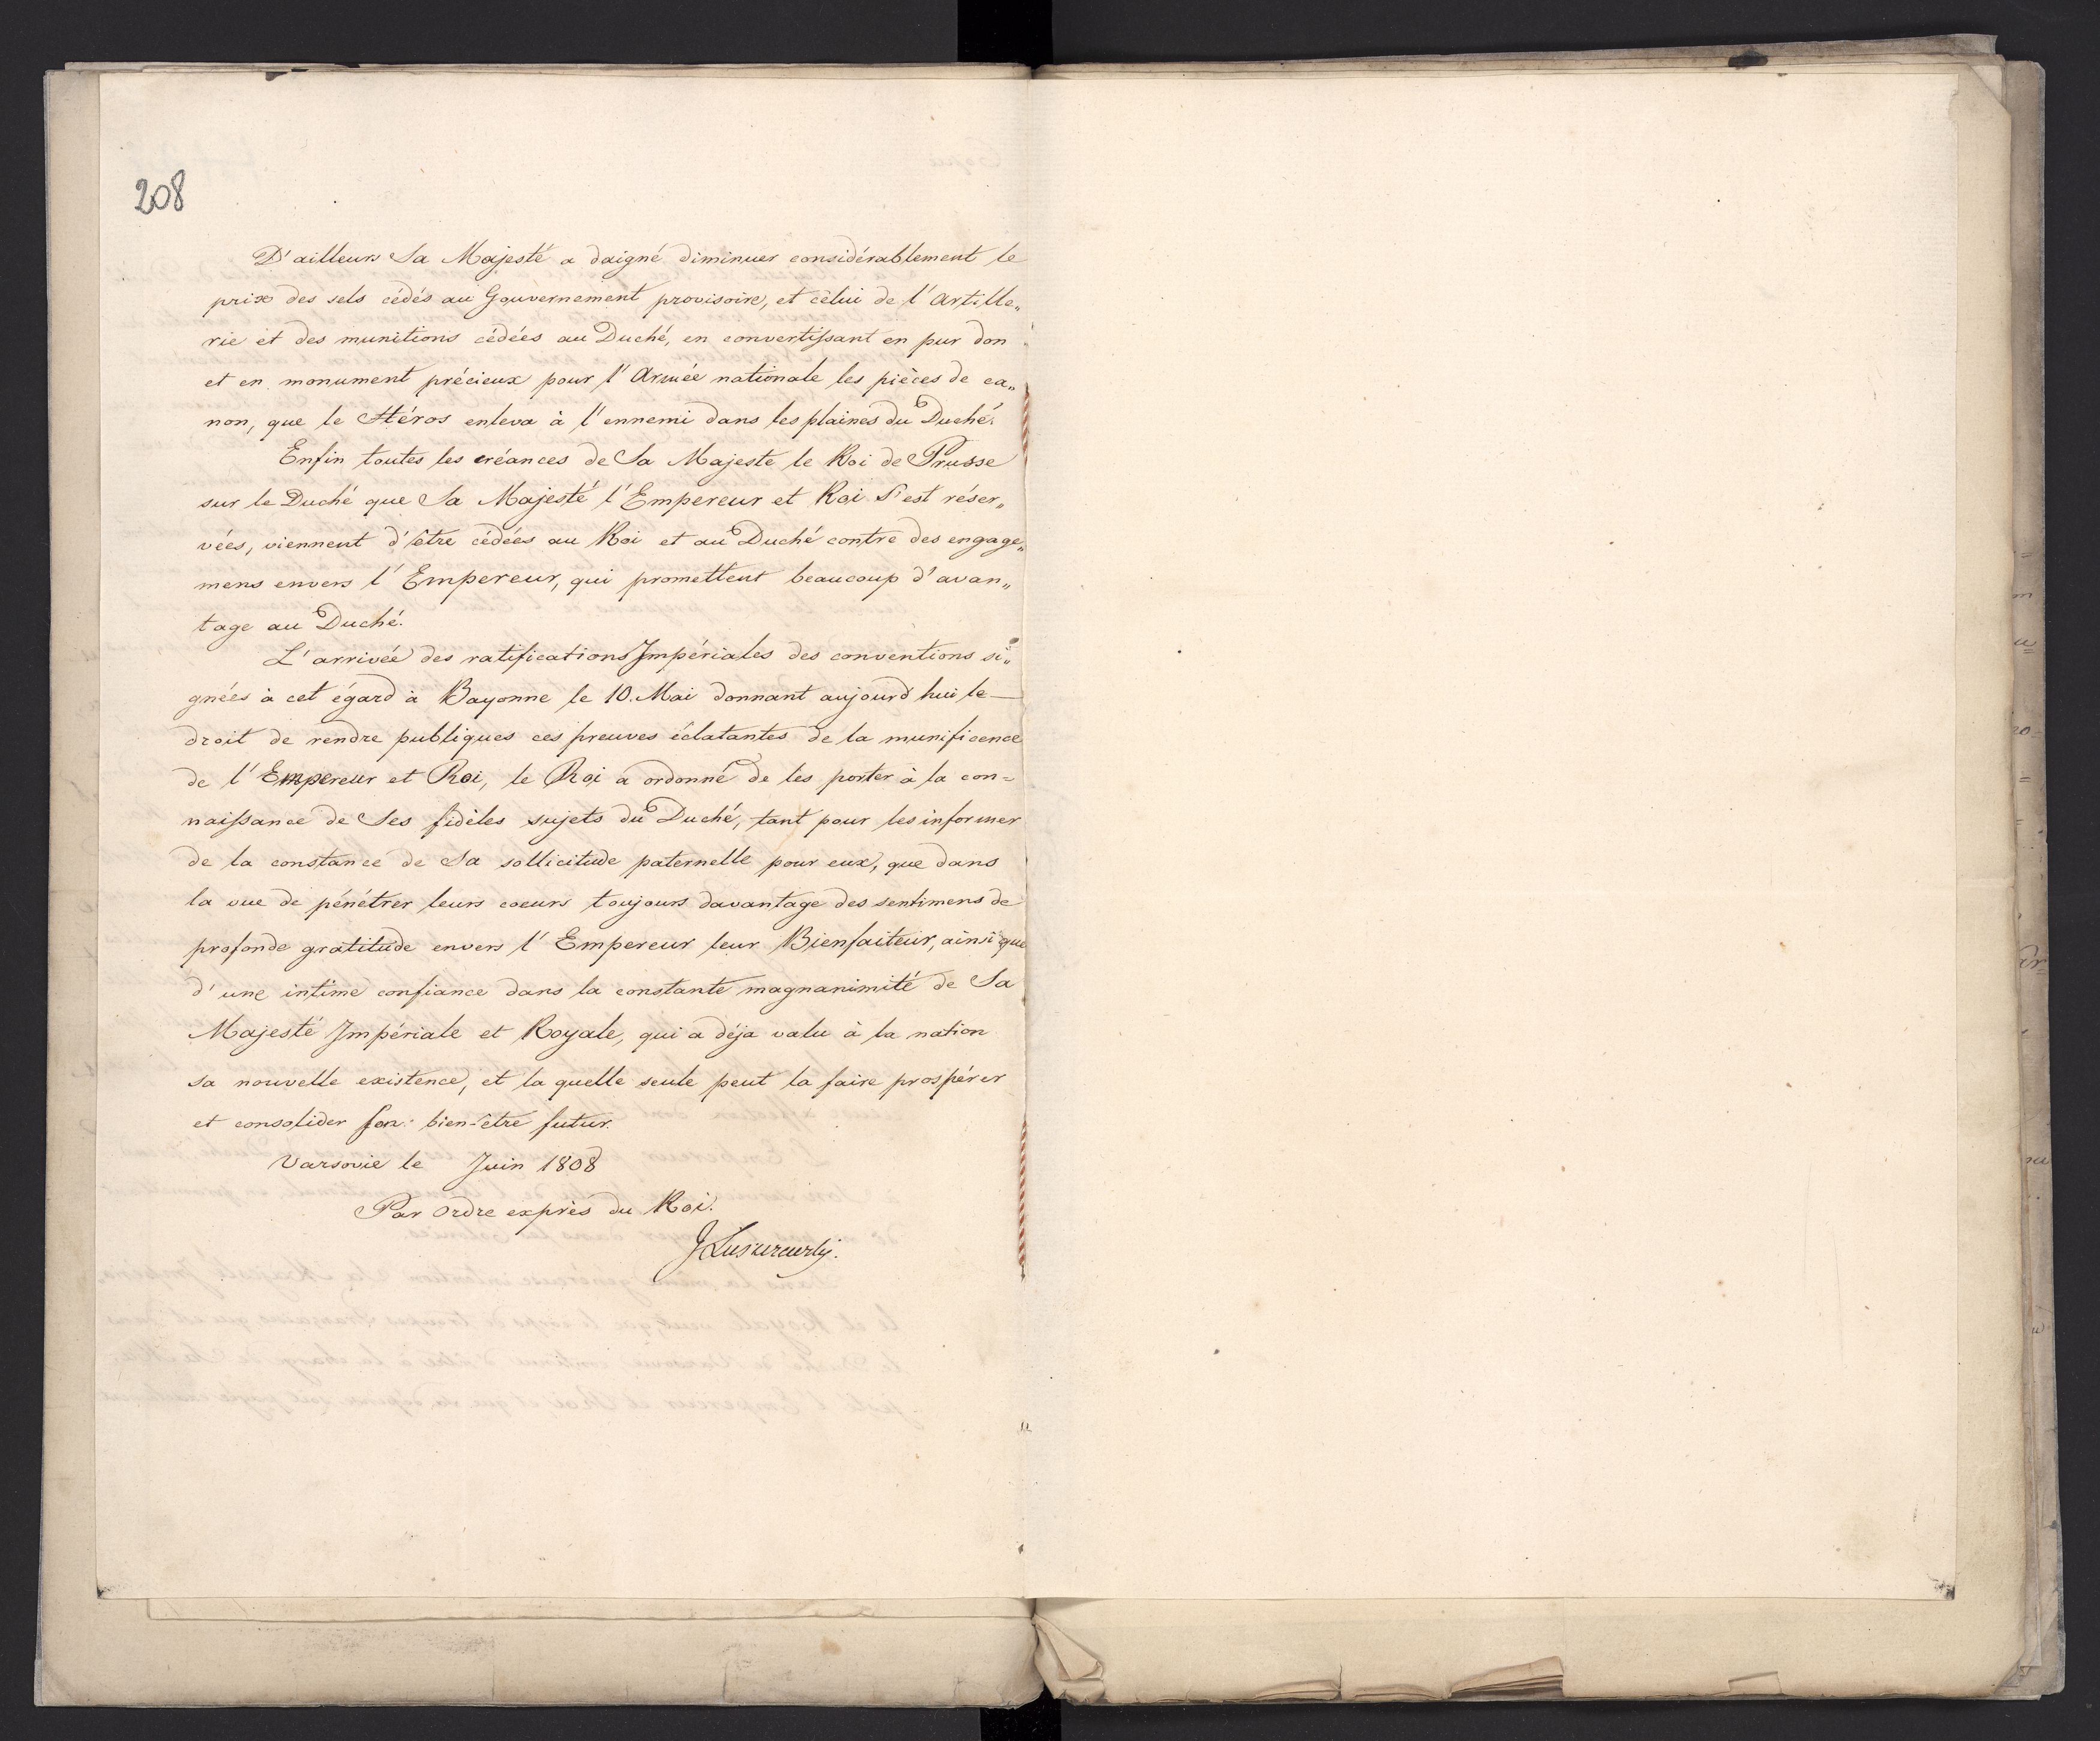 208
D'ailleurs Sa Majesté a daigné diminuer considérablement le
prix des sels cédés au Gouvernement provisoire, et célui de l'Artille„
rie et des munitions cédées au Duché, en convertiſsant en pur don
et en monument précieux pour l'Armée nationale les pièces de ca„
non, que le Héros enleva à l'ennemi dans les plaines du Duché.
Enfin toutes les créances de Sa Majeste le Roi de Prusse
sur le Duché que Sa Majesté l'Empereur et Roi S'est réser„
vées, viennent d'être cédées au Roi et au Duché contre des engage„
mens envers l'Empereur, qui promettent beaucoup d'avan„
tage au Duché.
L'arrivée des ratifications Impériales des conventions si„
gnées à cet égard à Bayonne le 10. Mai donnant aujourd'hui le—
droit de rendre publiques ces preuves éclatantes de la munificence
de l'Empereur et Roi, le Roi a ordonné de les porter à la con=
naiſsance de Ses fidèles sujets du Duché, tant pour les informer
de la constance de Sa sollicitude paternelle pour eux, que dans
la vue de pénétrer leurs coeurs toujours davantage des sentimens de
profonde gratitude envers l'Empereur leur Bienfaiteur, ainsi que
d'une intime confiance dans la constante magnanimité de Sa
Majesté Impériale et Royale, qui a déja valu à la nation
sa nouvelle existence, et la quelle seule peut la faire prospérer
et consolider ſon bien-être futur.
Varsovie le Juin 1808
Par Ordre exprès du Roi.